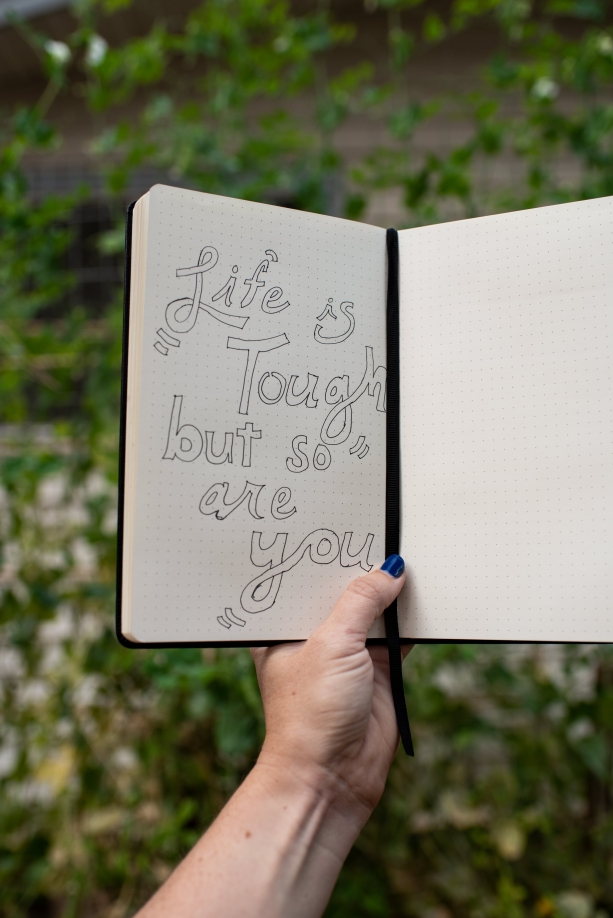 Life is
Tough
but so
are
you